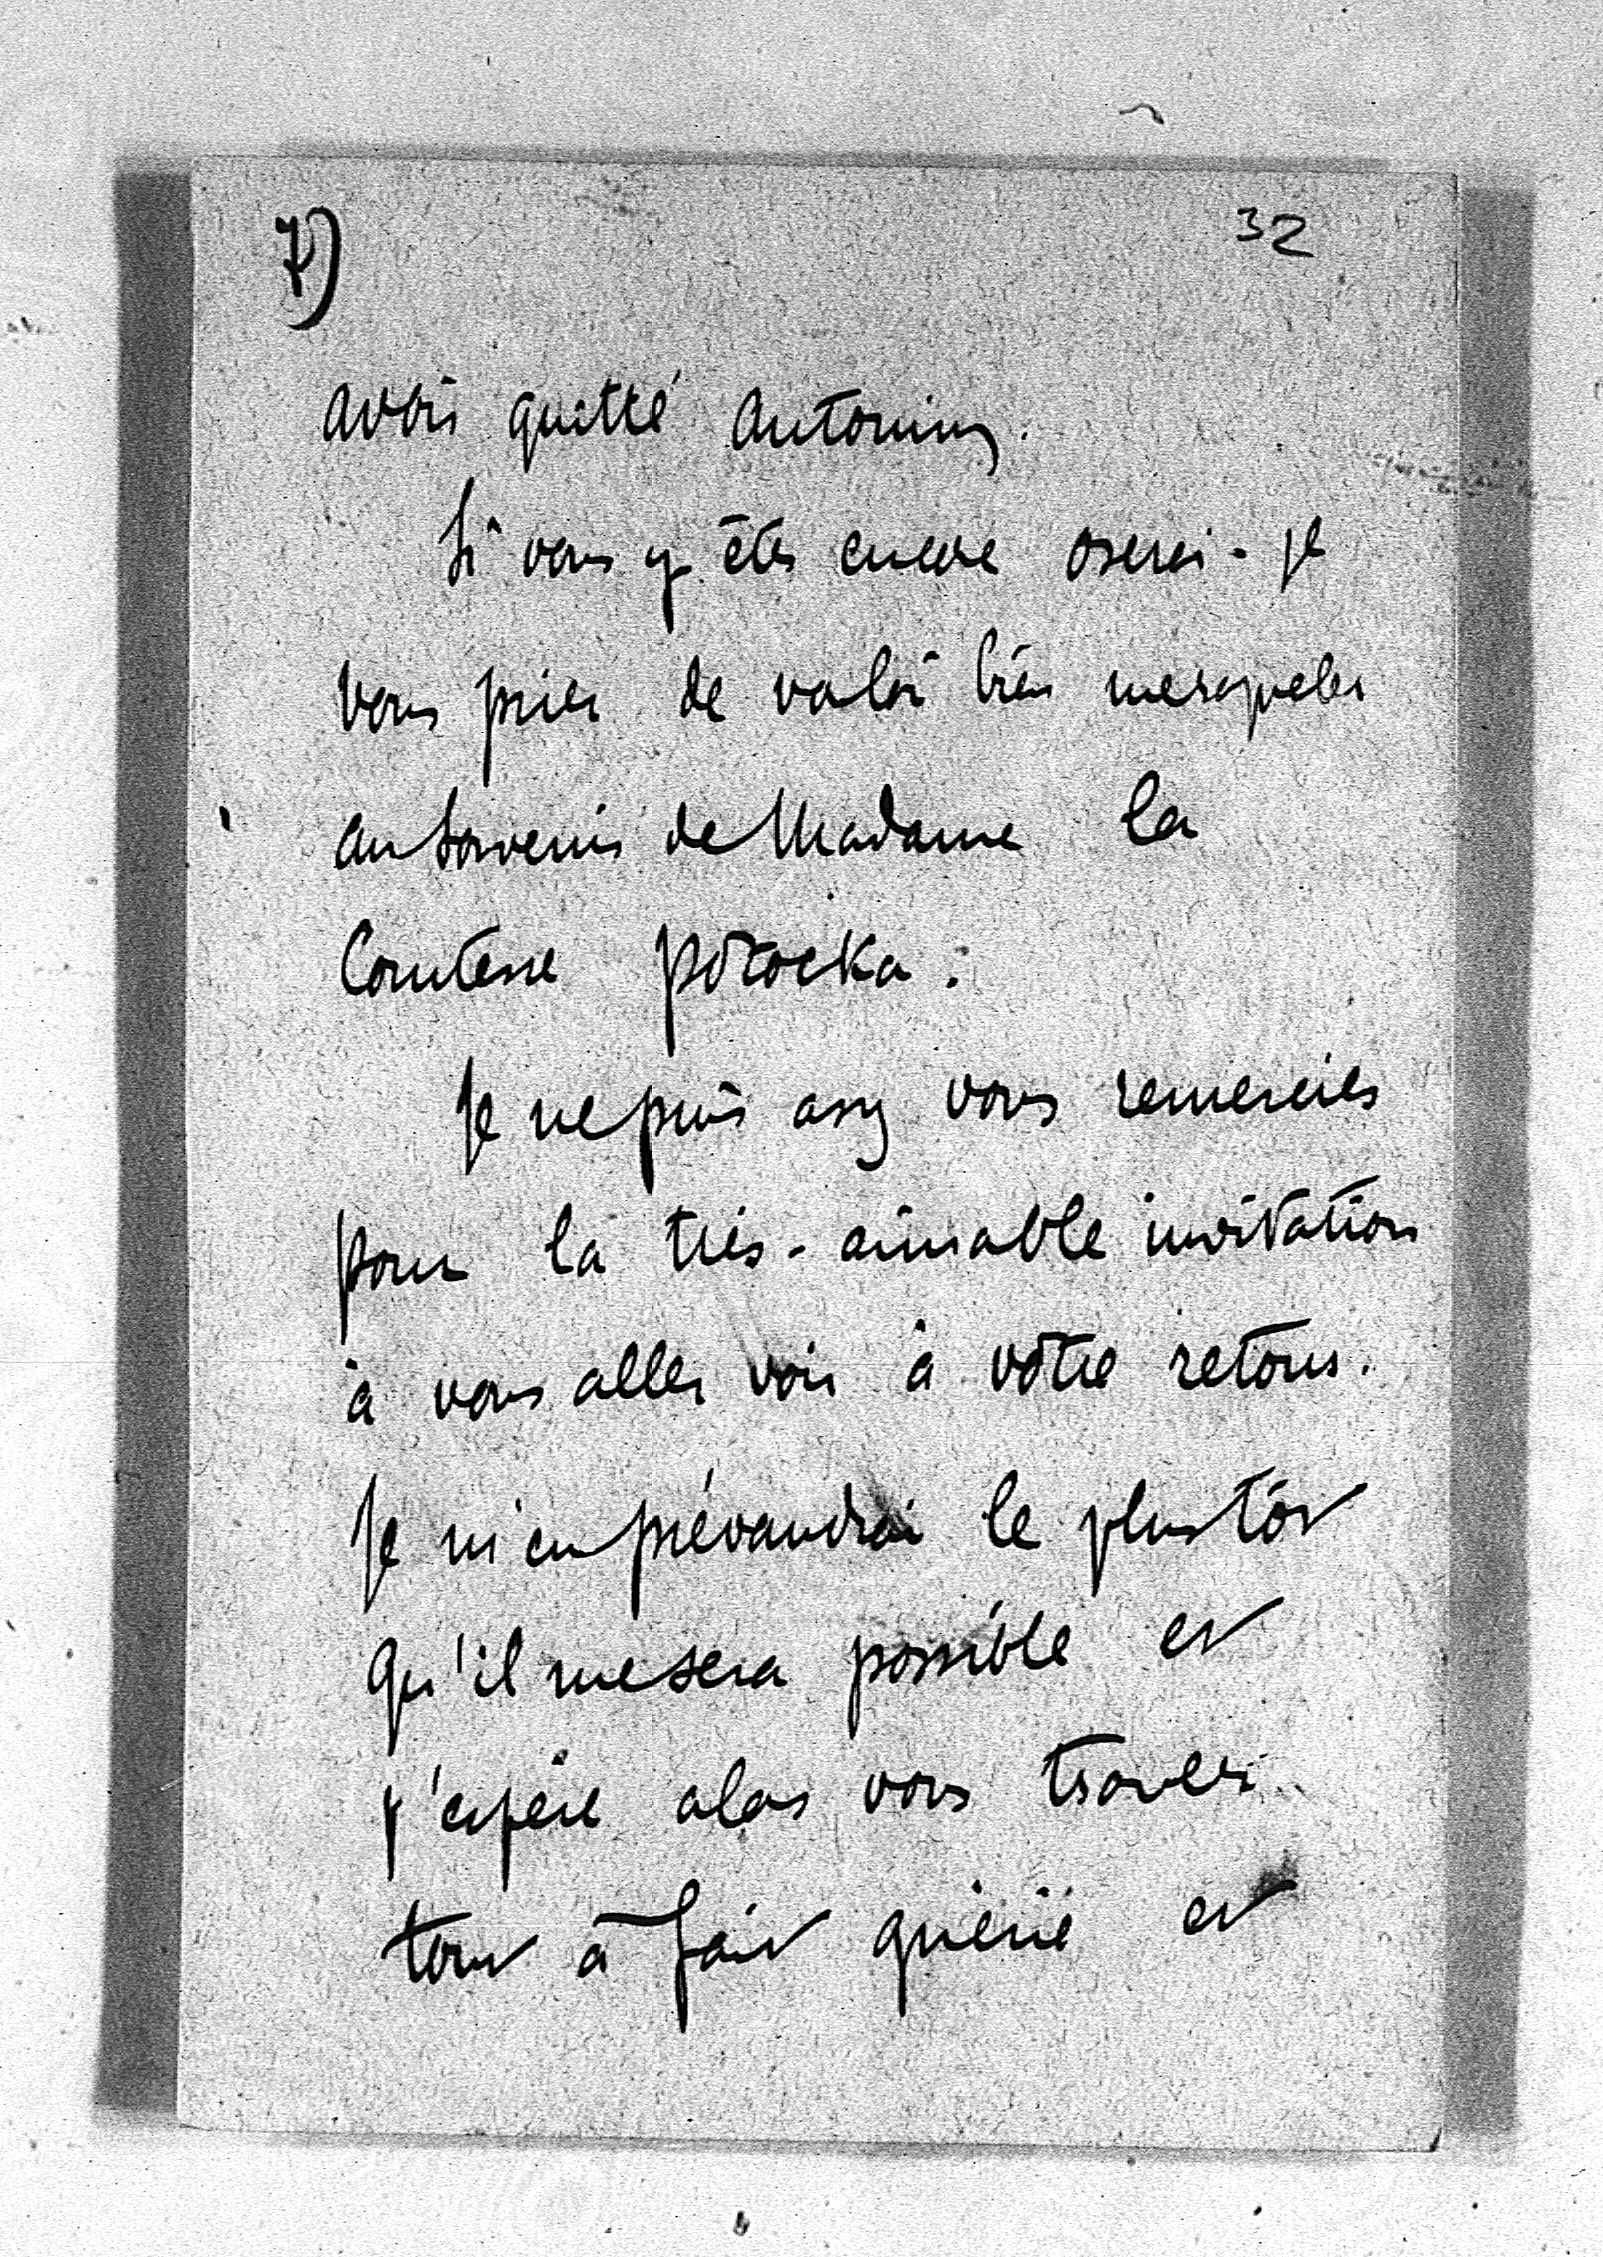 7)
32
avoir quitté Antoniny.
Si vous y êtes encore oserai-je
vous prier de valoir bien me rappeler
au souvenir de Madame la
Comtesse Potocka.
Je ne puis assez vous remercier
pour la très-aimable invitation
à vous aller voir à vôtre retour.
Je m'en prévaudrai le plus tôt
qu'il me sera possible et
j'espère alors vous trouver
tout à fait guérié et